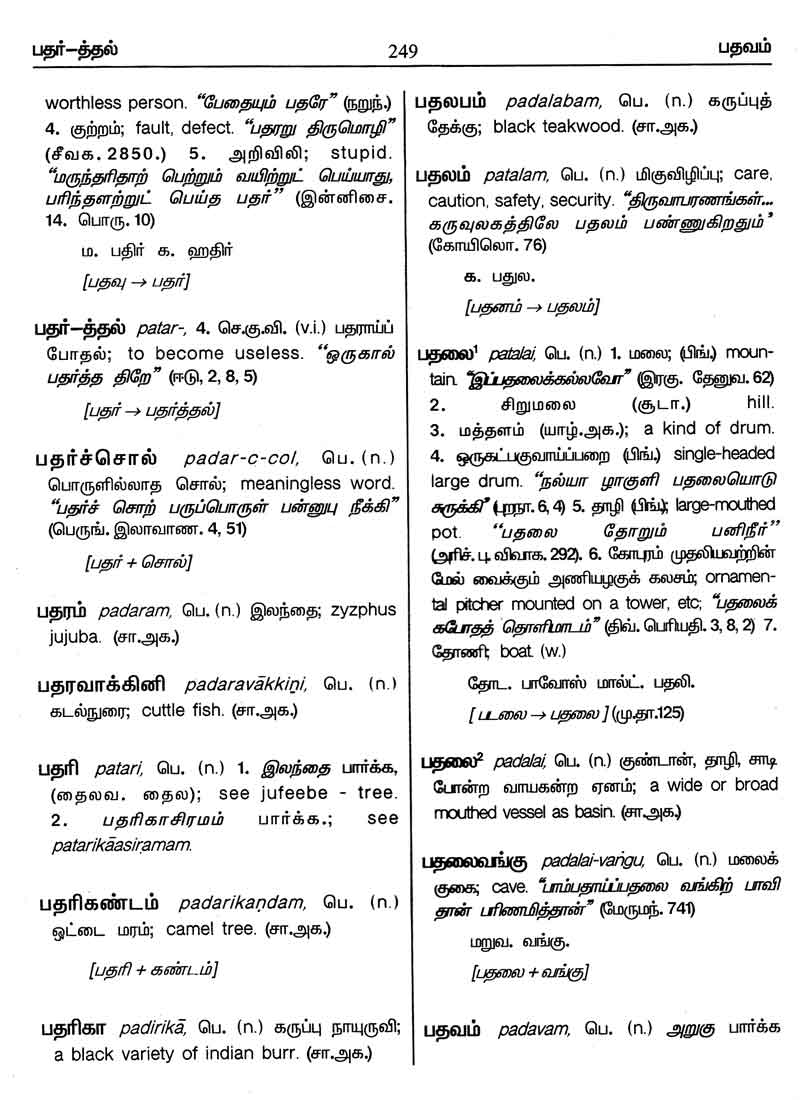 பதர்–த்தல்
249
பதவம்
worthless person. “பேதையும் பதரே” (நறுந்.)
4. குற்றம்; fault, defect. “பதரறு திருமொழி”
(சீவக. 2850.) 5. அறிவிலி; stupid.
“மருந்தரிதாற் பெற்றும் வயிற்றுட் பெய்யாது,
பரிந்தளற்றுட் பெய்த பதர்” (இன்னிசை.
14. பொரு. 10)
ம. பதிர் க. ஹதிர்
[பதவு → பதர்]
பதர்–த்தல் patar-, 4. செ.கு.வி. (v.i.) பதராய்ப்
போதல்; to become useless. “ஒருகால்
பதர்த்த திறே” (ஈடு, 2, 8, 5)
[பதர் → பதர்த்தல்]
பதர்ச்சொல் padar-c-col, பெ. (n.)
பொருளில்லாத சொல்; meaningless word.
“பதர்ச் சொற் பருப்பொருள் பன்னுபு நீக்கி”
(பெருங். இலாவாண. 4, 51)
[பதர் + சொல்]
பதரம் padaram, பெ. (n.) இலந்தை; zyzphus
jujuba. (சா.அக.)
பதரவாக்கினி padaravākkiṉi, பெ. (n.)
கடல்நுரை; cuttle fish. (சா.அக.)
பதரி patari, பெ. (n.) 1. இலந்தை பார்க்க,
(தைலவ. தைல); see jufeebe - tree.
2. பதரிகாசிரமம் பார்க்க.; see
patarikāasiṟamam.
பதரிகண்டம் padarikaṇdam, பெ. (n.)
ஒட்டை மரம்; camel tree. (சா.அக.)
[பதரி + கண்டம்]
பதரிகா padirikā, பெ. (n.) கருப்பு நாயுருவி;
a black variety of indian burr. (சா.அக.)
பதலபம் padalabam, பெ. (n.) கருப்புத்
தேக்கு; black teakwood. (சா.அக.)
பதலம் patalam, பெ. (n.) மிகுவிழிப்பு; care,
caution, safety, security. “திருவாபரணங்கள்...
கருவுலகத்திலே பதலம் பண்ணுகிறதும்”
(கோயிலொ. 76)
க. பதுல.
[பதனம் → பதலம்]
பதலை¹ patalai, பெ. (n.) 1. மலை; (பிங்.) moun-
tain. “இப்பதலைக்கல்லவோ” (இரகு. தேனுவ. 62)
2. சிறுமலை (சூடா.) hill.
3. மத்தளம் (யாழ்.அக.); a kind of drum.
4. ஒருகட்பகுவாய்ப்பறை (பிங்.) single-headed
large drum. “நல்யா ழாகுளி பதலையொடு
சுருக்கி” (புறநா. 6, 4) 5. தாழி (பிங்.); large-mouthed
pot. “பதலை தோறும் பனிநீர்”
(அரிச். பூ. விவாக. 292). 6. கோபுரம் முதலியவற்றின்
மேல் வைக்கும் அணியழகுக் கலசம்; ornamen-
tal pitcher mounted on a tower, etc; “பதலைக்
கபோதத் தொளிமாடம்” (திவ். பெரியதி. 3, 8, 2) 7.
தோணி; boat. (w.)
தோட. பாவோஸ் மால்ட். பதலி.
[ படலை → பதலை ] (மு.தா.125)
பதலை² padalai, பெ. (n.) குண்டான், தாழி, சாடி
போன்ற வாயகன்ற ஏனம்; a wide or broad
mouthed vessel as basin. (சா.அக.)
பதலைவங்கு padalai-vaṅgu, பெ. (n.) மலைக்
குகை; cave. “பாம்பதாய்ப்பதலை வங்கிற் பாவி
தான் பரிணமித்தான்” (மேருமந். 741)
மறுவ. வங்கு.
[பதலை + வங்கு]
பதவம் padavam, பெ. (n.) அறுகு பார்க்க